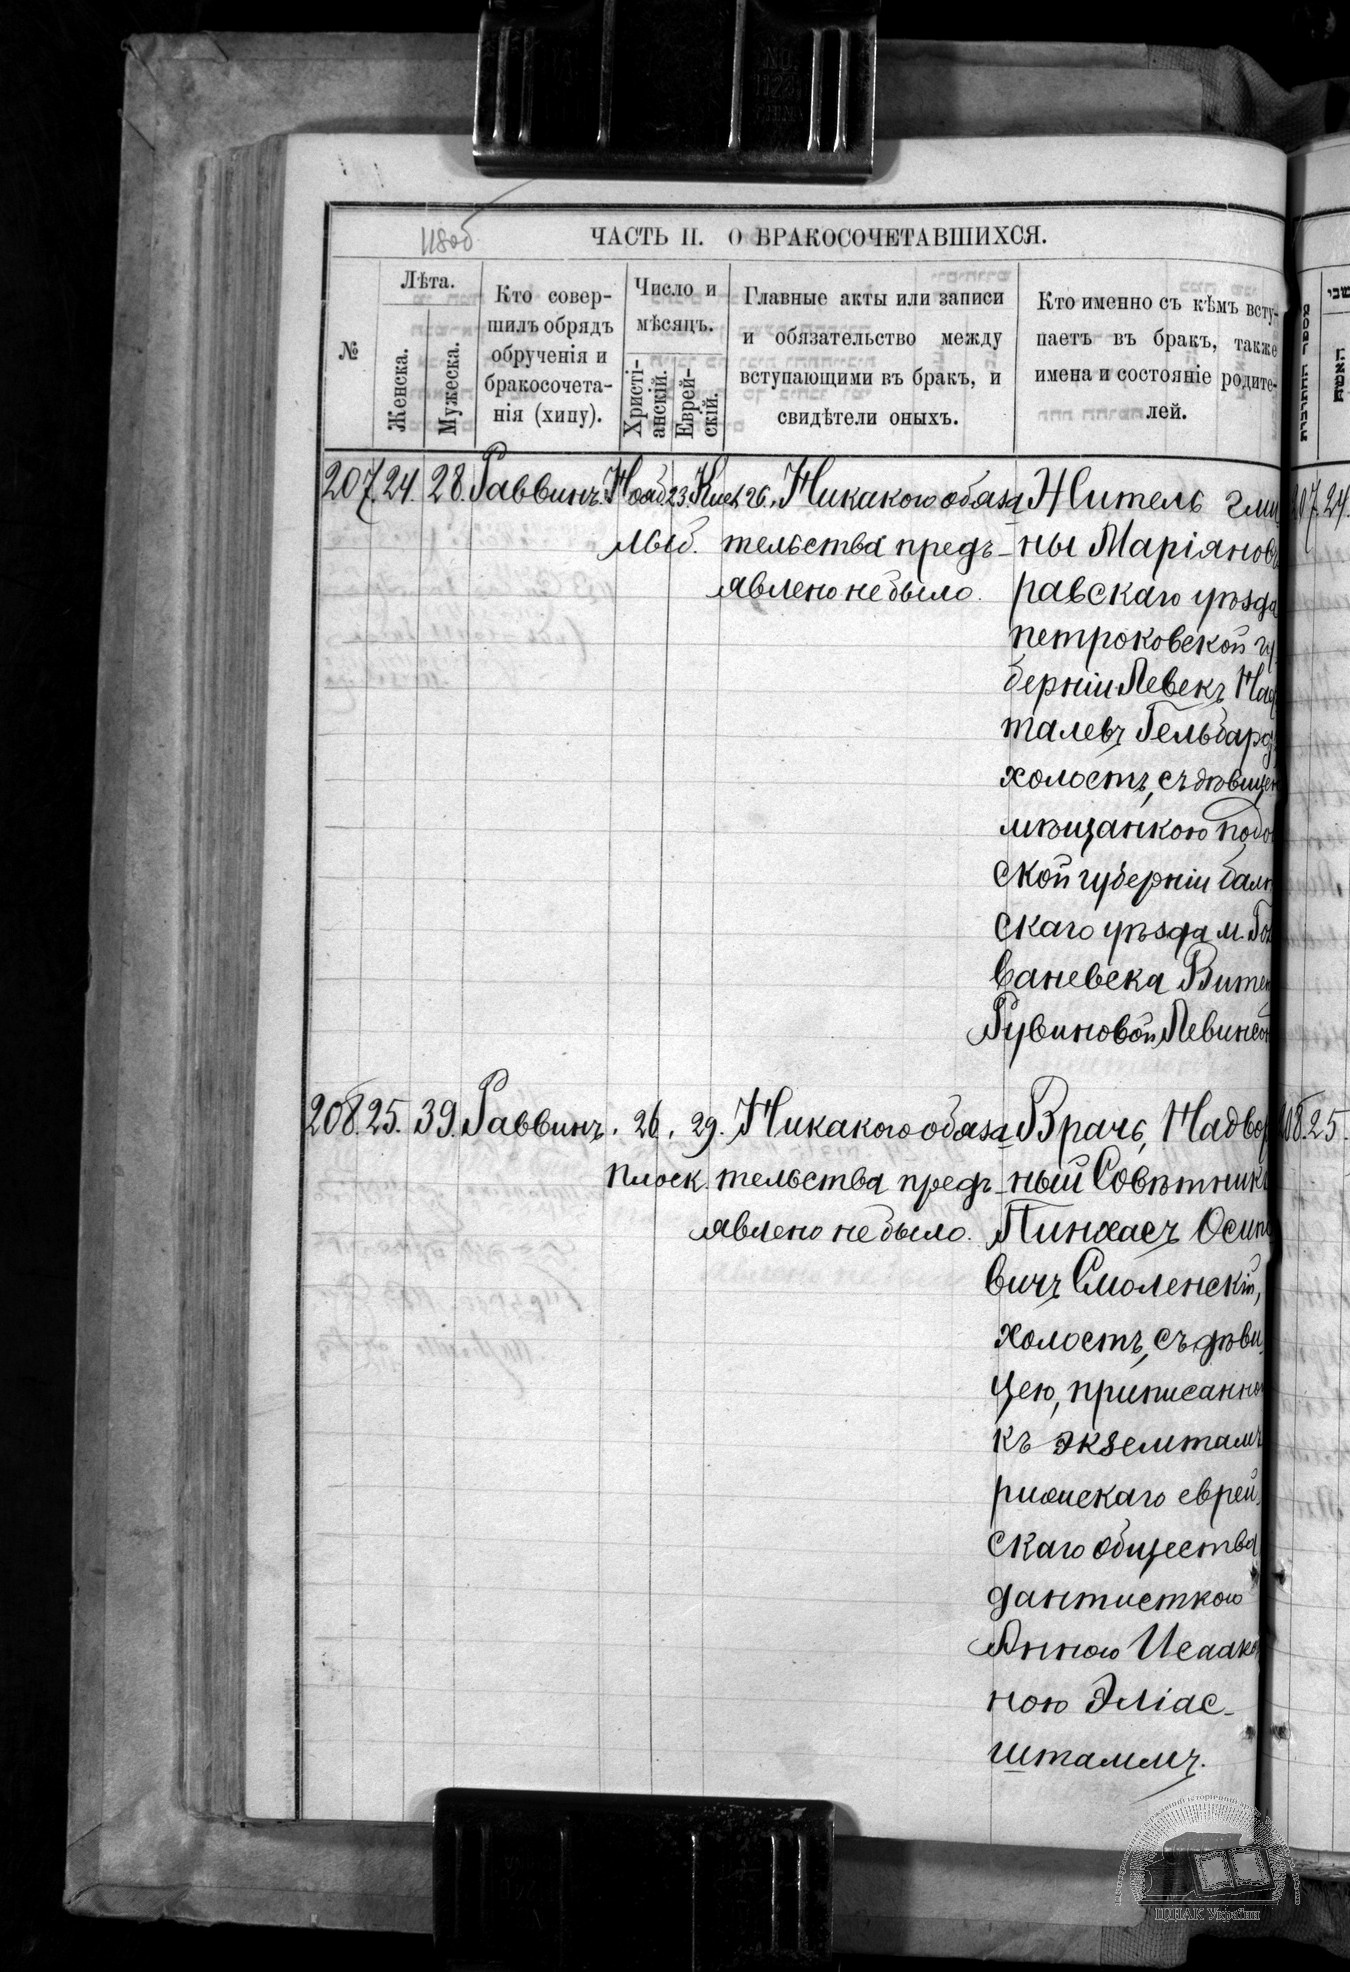 118об
ЧАСТЬ II. О БРАКОСОЧЕТАВШИХСЯ.
№
Лѣта.
Женска.
Мужеска.
Кто совер-
шилъ обрядъ
обрученія и
бракосочета-
нія (хипу).
Число и
мѣсяцъ.
Христі-
анскій.
Еврей-
скій.
Главные акты или записи
и обязательство между
вступающими въ бракъ, и
свидѣтели оныхъ.
Кто именно съ кѣмъ всту-
паетъ въ бракъ, также
имена и состояніе родите-
лей.
207. 24. 28. Раввинъ. Нояб. 23. Кисл. 26. Никакого обяза Житель гми
Лыб. тельства предъ- ны Маріянов
явлено не было. равскаго уѣзда
петроковской гу
берніи Левекъ Наф
талевъ Гельбард
холостъ, съ дѣвицею
мѣщанкою подо
ской губерніи балт
скаго уѣзда м. Го
ваневска
Рувиновой Левинсон
208. 25. 39. Раввинъ. 26. 29. Никакого обяза Врачъ, Надвор
Плоск. тельства предъ- ный Совѣтникъ
явлено не было. Пинхасъ Осипо
вичъ Смоленскій,
холостъ, съ дѣви
цею, приписанно
къ экземтамъ
рижскаго еврей
скаго общества
дантисткою
Анною Исааков
ною Эліас-
штаммъ.
207. 24.
208. 25.
ЦДІАК України